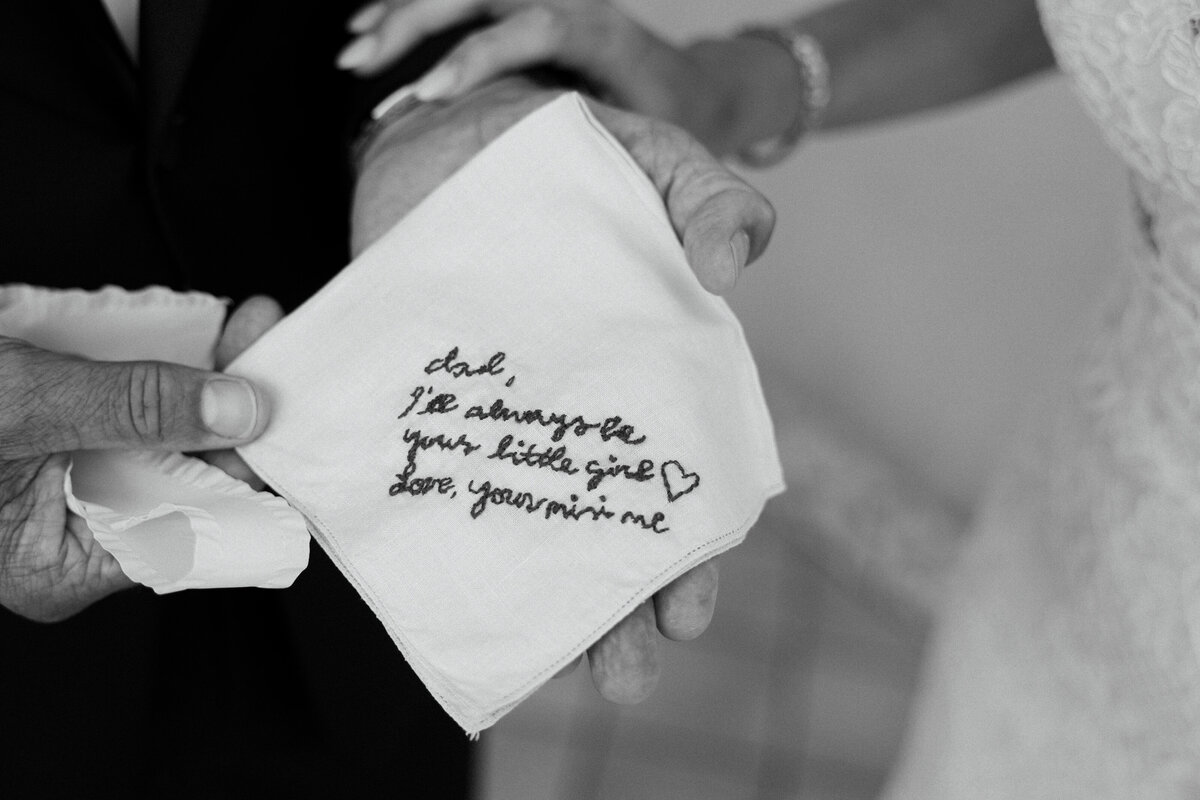 dad,
I'll always be
your little girl ♡
Love, your mini me